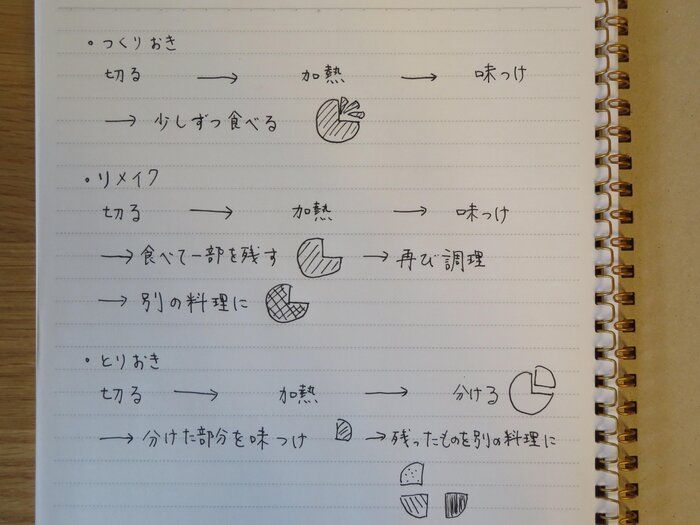 ・つくりおき
切る → 加熱 → 味つけ
→ 少しずつ食べる
・リメイク
切る → 加熱 → 味つけ
→ 食べて一部を残す → 再び調理
→ 別の料理に
・とりおき
切る → 加熱 → 分ける
→ 分けた部分を味つけ → 残ったものを別の料理に